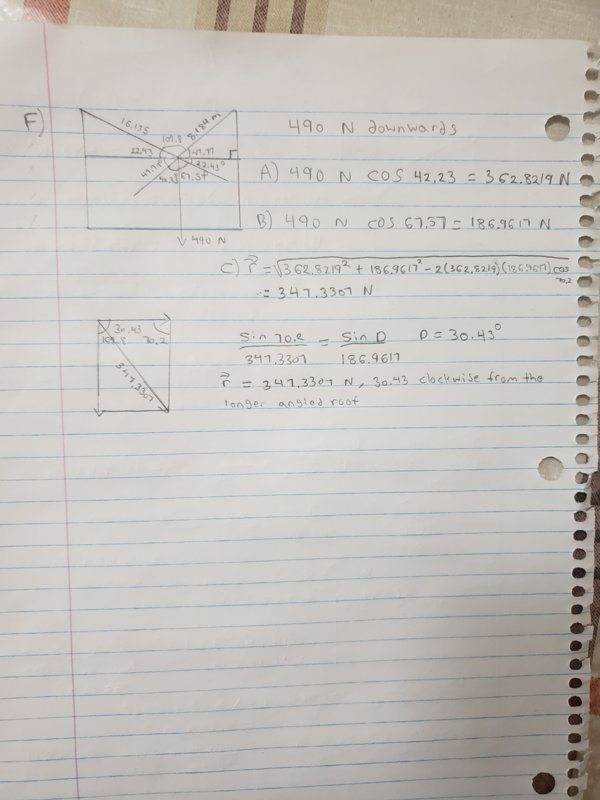 F)
16.135
8.184 m
109.8
22.43
47.77
22.43°
67.57
490 N
490 N downwards
A) 490 N cos 42.23 = 362.8219 N
B) 490 N cos 67.57 = 186.9617 N
C) r⃗ = √362.8219² + 186.9617² - 2(362.8219)(186.9617) cos 70.2
= 347.3307 N
30.43
109.8 70.2
347.3307
sin 70.2 / 347.3307 = sin D / 186.9617 D = 30.43°
r⃗ = 347.3307 N, 30.43 clockwise from the
longer angled roof